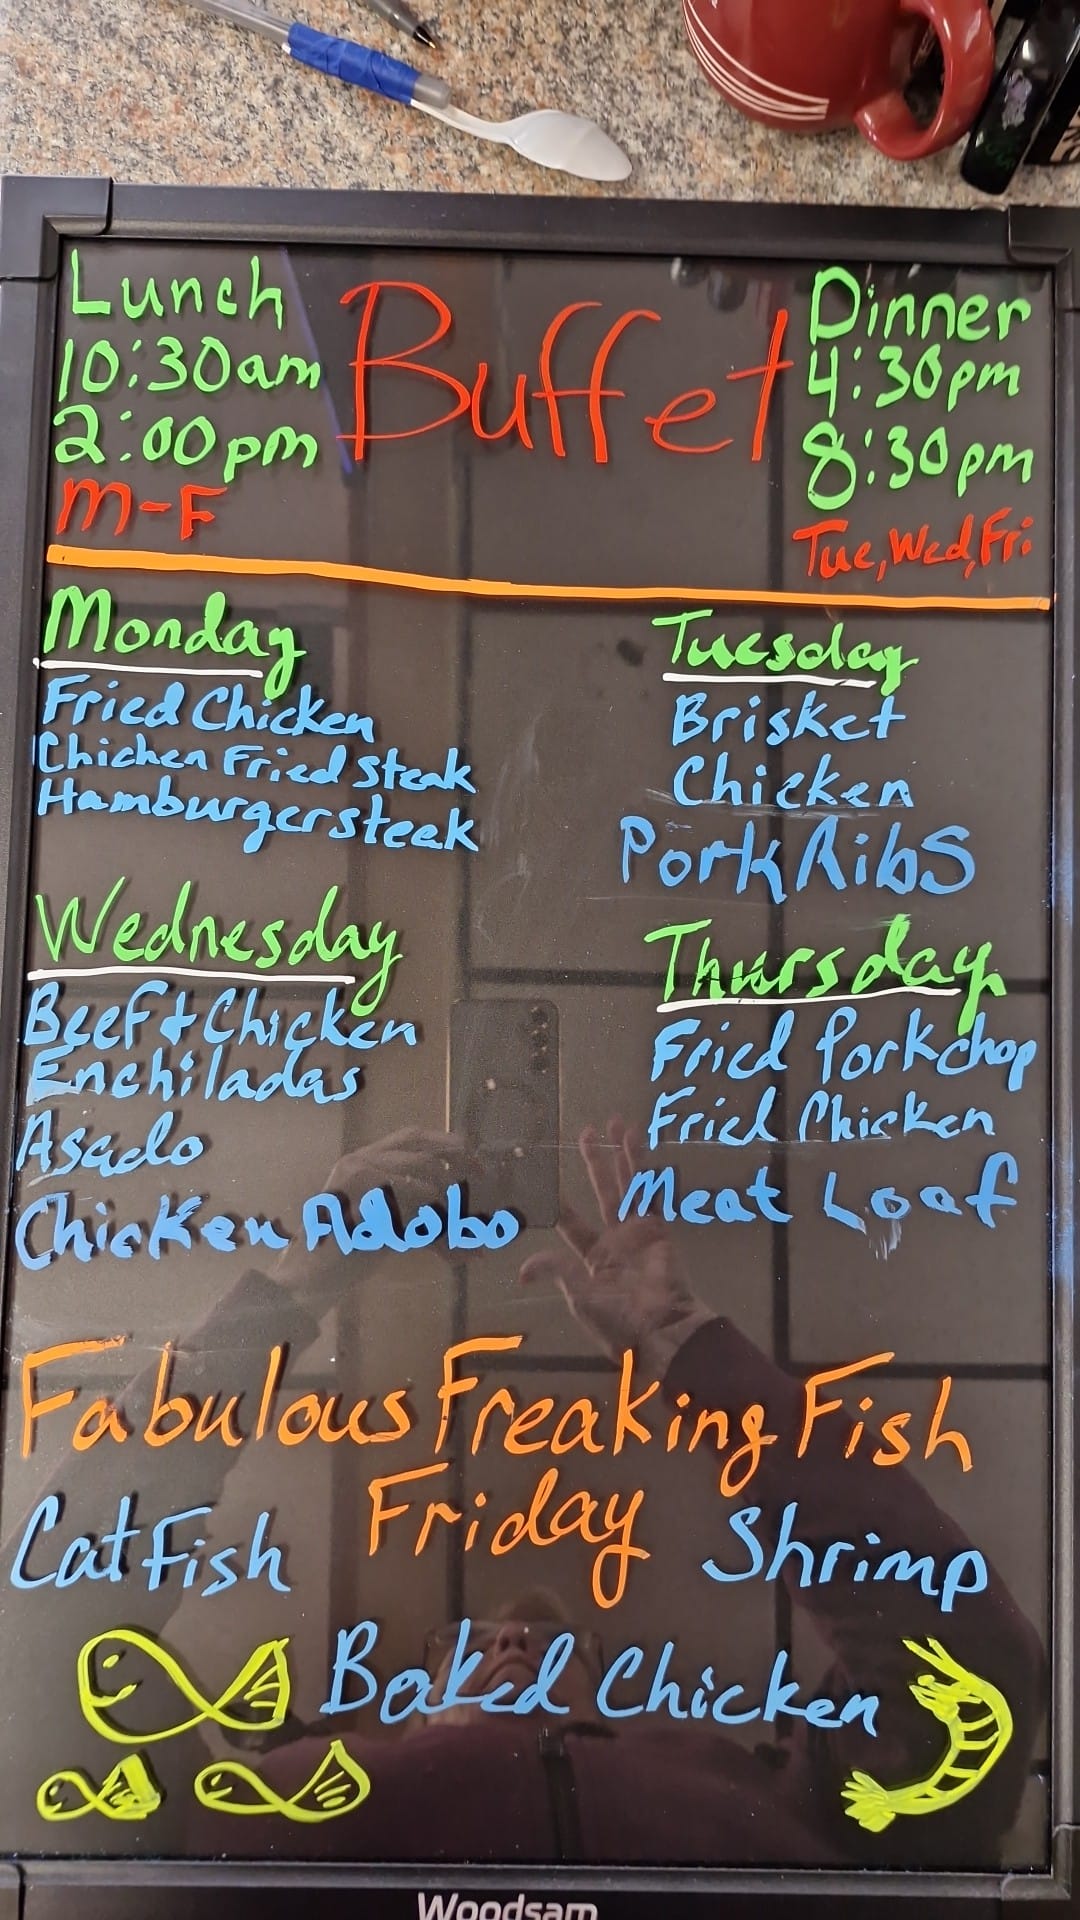 Lunch
10:30am
2:00pm
M-F
Buffet
Dinner
4:30pm
8:30pm
Tue, Wed, Fri
Monday
Fried Chicken
Chicken Fried Steak
Hamburger steak
Tuesday
Brisket
Chicken
Pork Ribs
Wednesday
Beef & Chicken
Enchiladas
Asado
Chicken Adobo
Thursday
Fried Porkchop
Fried Chicken
Meat Loaf
Fabulous Freaking Fish
Friday
CatFish
Shrimp
Baked Chicken
Woodsam